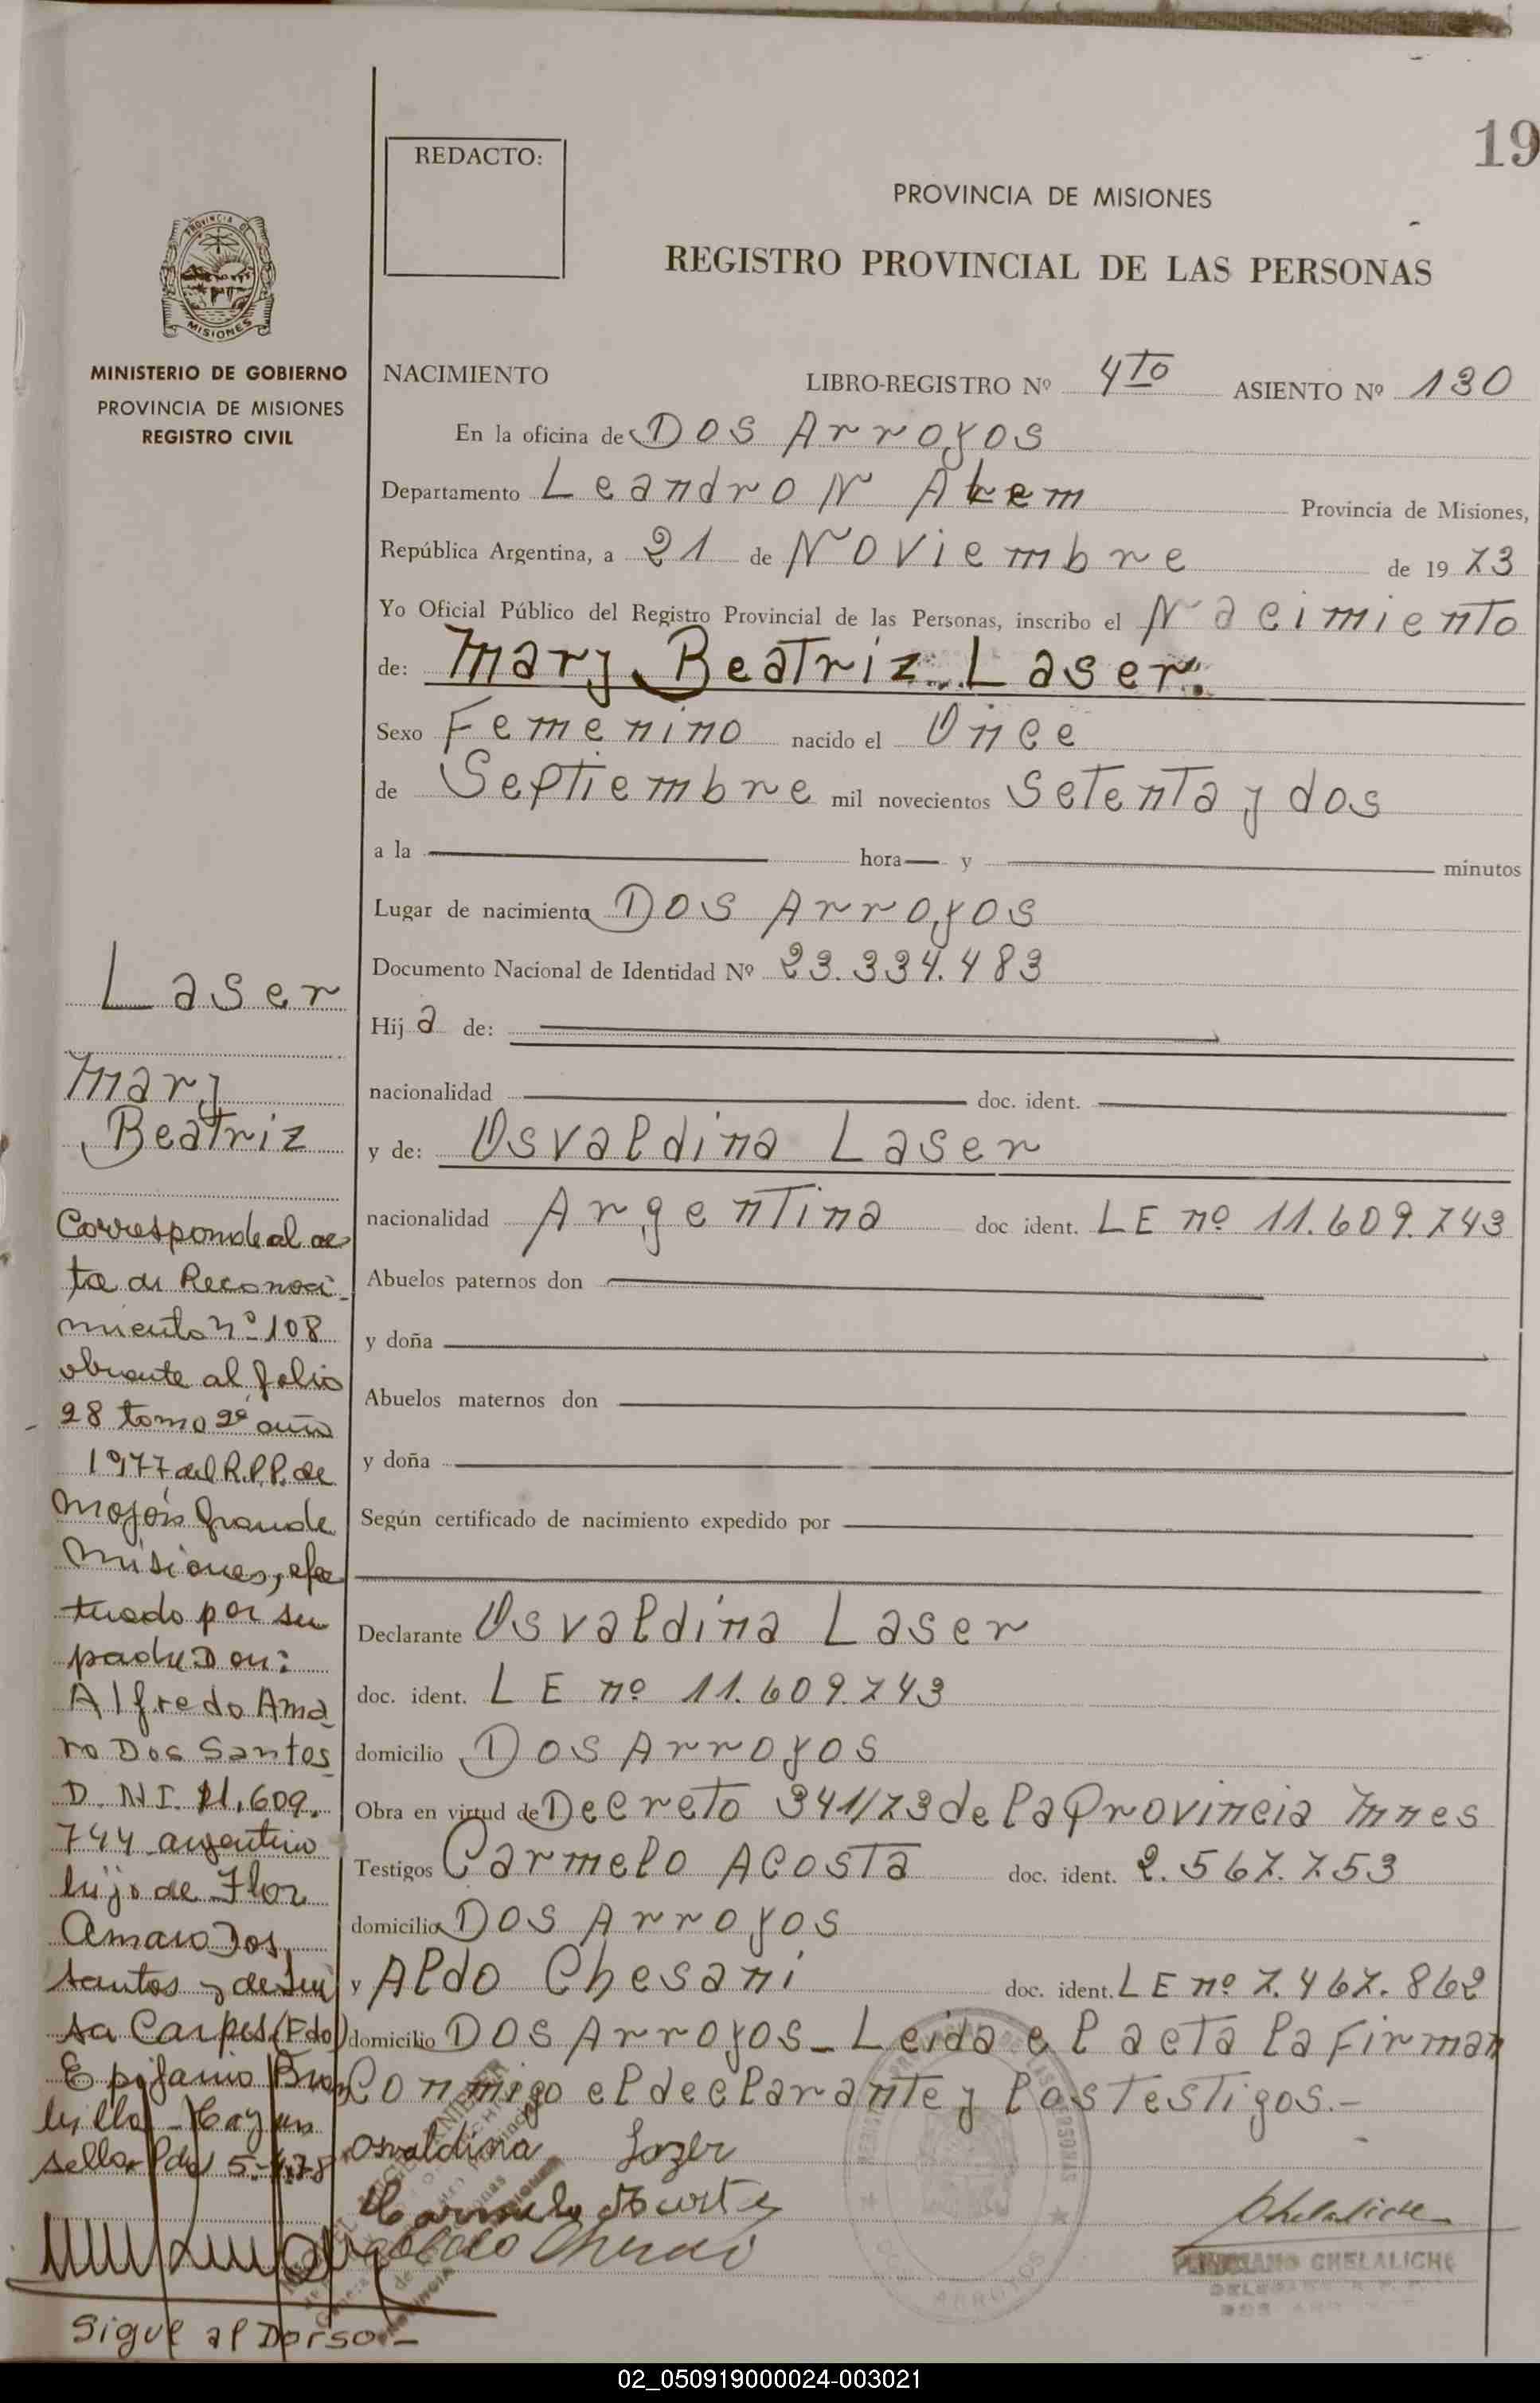 19
REDACTO:
PROVINCIA DE MISIONES
REGISTRO PROVINCIAL DE LAS PERSONAS
PROVINCIA DE
MISIONES
MINISTERIO DE GOBIERNO
PROVINCIA DE MISIONES
REGISTRO CIVIL
NACIMIENTO LIBRO-REGISTRO Nº 4TO ASIENTO Nº 130
En la oficina de Dos Arroyos
Departamento Leandro N Alem Provincia de Misiones,
República Argentina, a 21 de Noviembre de 19 73
Yo Oficial Público del Registro Provincial de las Personas, inscribo el Nacimiento
de: Mary Beatriz Laser.
Sexo Femenino nacido el Once
de Septiembre mil novecientos Setenta y dos
a la hora y minutos
Lugar de nacimiento Dos Arroyos
Documento Nacional de Identidad Nº 23.334.483
Hija de:
nacionalidad doc. ident.
y de: Osvaldina Laser
nacionalidad Argentina doc. ident. LE nº 11.609.743
Abuelos paternos don
y doña
Abuelos maternos don
y doña
Según certificado de nacimiento expedido por
Declarante Osvaldina Laser
doc. ident. LE nº 11.609.743
domicilio Dos Arroyos
Obra en virtud de Decreto 341/73 de la Provincia Mnes
Testigos Carmelo Acosta doc. ident. 2.567.753
domicilio Dos Arroyos
y Aldo Chesani doc. ident. LE nº 7.467.862
domicilio Dos Arroyos_ Leida el acta la Firman
Conmigo el declarante y los Testigos.-
Osvaldina Lazer
CHELALICHE
Laser
Mary
Beatriz
Corresponde al ac
ta de Reconoci_
miento nº 108
obrante al folio
28 tomo 2º año
1977 del R.P.P. de
Mojón Grande
Misiones, efec
tuado por su
padre Don:
Alfredo Ama
ro Dos Santos
D.N.I. 11,609.
744 argentino
hijo de Flor
Amaro Dos
Santos y de Lui
sa Carpes. (Fdo)
Epifanio
Hay un
sello. Pdas 5-4-78
Sigue al Dorso.-
02_050919000024-003021